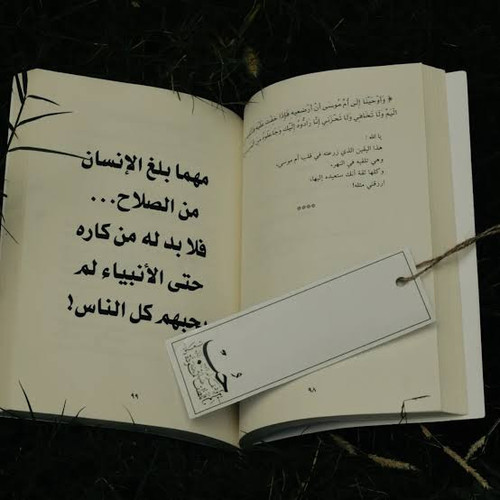 ﴿ وَأَوْحَيْنَا إِلَى أُمِّ مُوسَى أَنْ أَرْضِعِيهِ فَإِذَا خِفْتِ عَلَيْهِ
الْيَمِّ وَلَا تَخَافِي وَلَا تَحْزَنِي إِنَّا رَادُّوهُ إِلَيْكِ وَجَاعِلُوهُ مِنَ
يا الله !
هذا اليقين الذي زرعته في قلب أم موسى،
وهي تلقيه في النهر،
وكلها ثقة أنك ستعيده إليها،
ارزقني مثله!
****
٩٨
مهما بلغ الإنسان
من الصلاح...
فلا بد له من كاره
حتى الأنبياء لم
يحبهم كل الناس!
٩٩
حُبّ